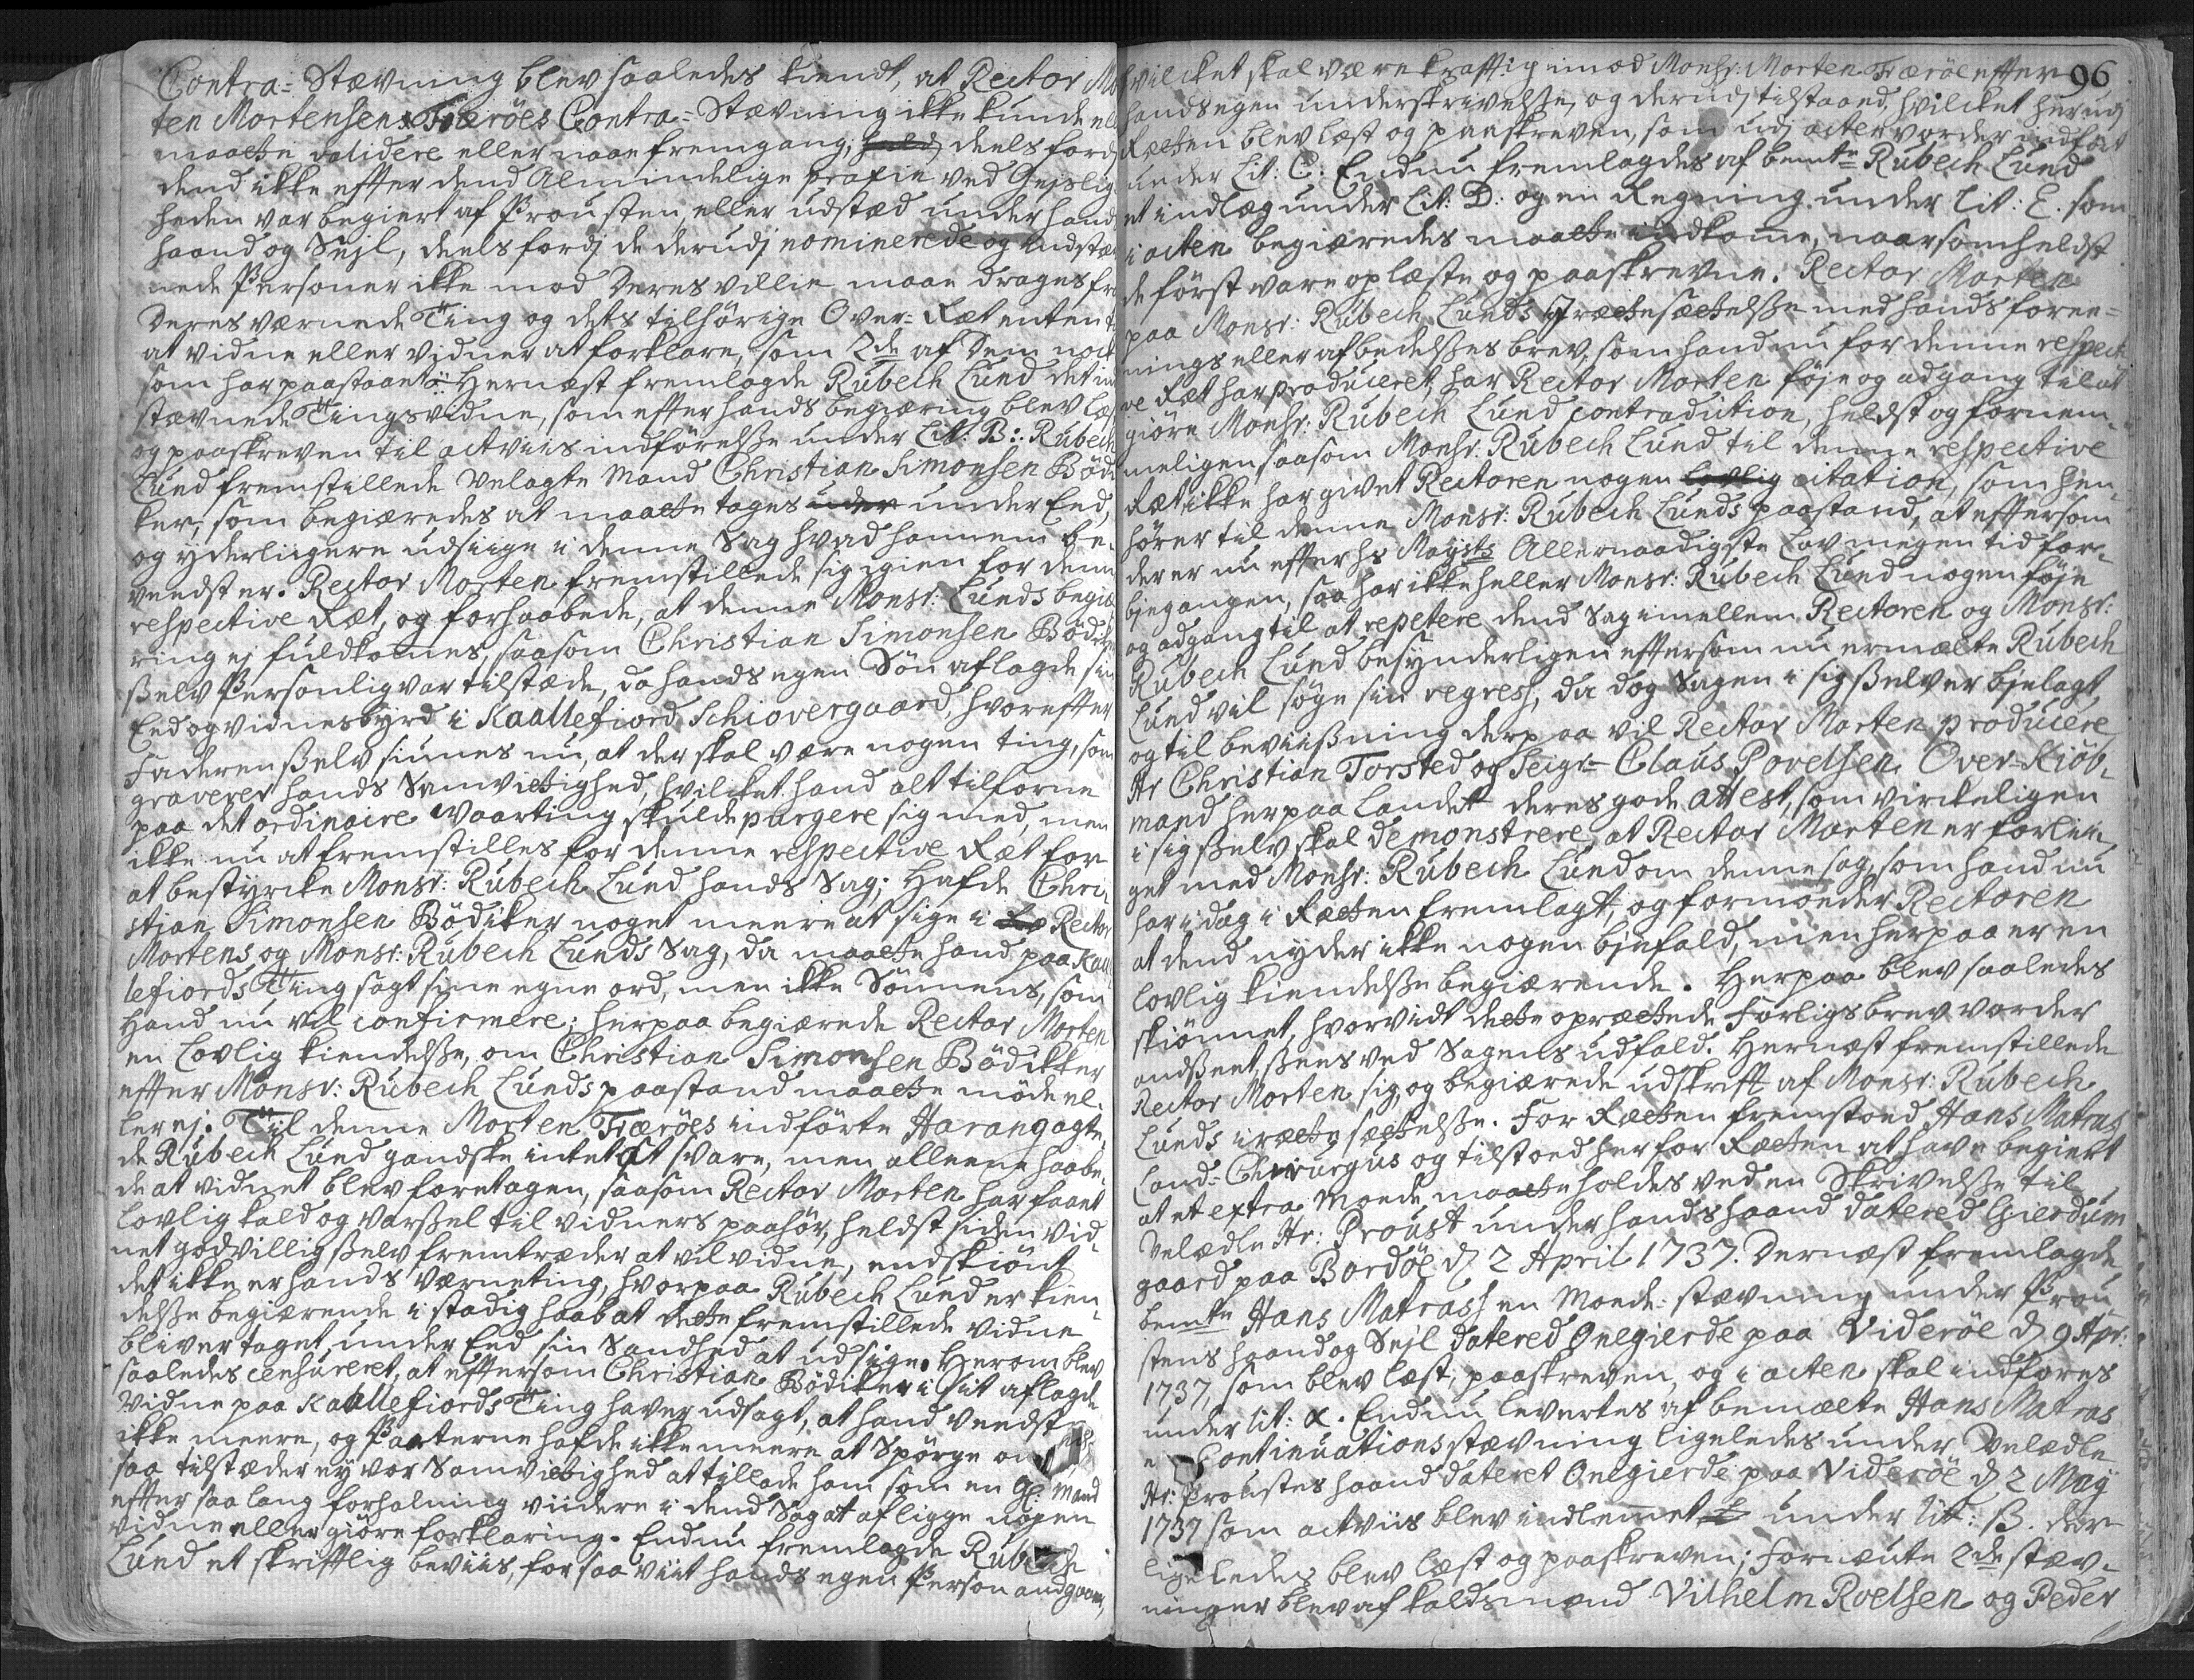 Contra=Stævning blev saaledes kiendt, at Rector Mo
ten Mortensen Færöes Contra=Stævning ikke kunde ell
maatte validere eller naae fremgang, deels fordj
dend ikke effter dend Almindelige praxin ved Gejslig
heden var begiert af Prousten, eller udstæd under hand
haand og Sejl, deels fordj de derudj nominerede og indstæv
nede Personer ikke mod Deres villie maae drages fra
Deres værnede Ting og dets tilhörige Over=Ræt enten t
at vidne eller vidner at forklare, som 2de af Dem nock
som har paastaaet. Hernæst fremlagde Rubech Lund det ind
stævnede Tingsvidne, som effter hands begiæring blev læst
og paaskreven til actviis indförelsse under Lit: B: Rubech
Lund fremstillede Velagte Mand Christian Simonsen Bödi
ker, som begiæredes at maatte tages under Eed,
og yderligere udsiige i denne Sag hvad hannem be-
vendst er. Rector Morten fremstillede sig igien for denne
respective Ræt, og forhaabede, at denne Monsr: Lunds begiæ
ring ej fuldkomes, saasom Christian Simonsen Bödiker
sselv Personlig var tilstæde, da hands egen Sön aflagde sin
Eed og vidnesbyrd i Kaallefiord Schiovergaard, hvoreffter
Faderen sselv siunes nu, at der skal være nogen ting, som
graverer hands Samvittighed, hvilcket hand alt tilforne
paa det ordinaire Waarting skulde purgere sig med, men
ikke nu at fremstilles for denne respective Ræt for
at bestyrcke Monsr: Rubech Lund hands Sag; Hafde Chri-
stian Simonsen Bödiker noget meere at sige i Rector
Mortens og Monsr: Rubech Lunds Sag, da maatte hand paa Kaal
lefiords Ting sagt sine egne ord, men ikke Sönnens, som
Hand nu vil confirmere; herpaa begiærede Rector Morten
en Lovlig kiendelsse, om Christian Simonsen Bödikker
effter Monsr: Rubech Lunds paastand maatte möde el-
ler ej. Til denne Morten Færöes indförte Harang agte
de Rubech Lund gandske intet at svare, men alleene haabe-
de at vidnet blev foretagen, saasom Rector Morten har faaet
lovlig kald og varssel til vidners paahör, heldst siden vid-
net godvillig sselv fremtræder at vil vidne, endskiönt
det ikke er hands Værneting, hvorpaa Rubech Lund er kien-
delsse begiærende i stadig haab at dette fremstillede vidne
bliver taget under Eed sin Sandhed at udsige. Herom blev
saaledes censureret, at efftersom Christian Bödiker i sit aflagde
Vidne paa Kaallefiords Ting haver udsagt, at hand veedst
ikke meere, og Parterne hafde ikke meere at Spörge om
saa tilstæder ey vor Samvittighed at tillade ham som en gl: mand
effter saa lang forhalning viidere i dend Sag at afligge nogen
vidne eller giöre forklaring. Endnu fremlagde Rubech
Lund et skrifftlig beviis, for saa viit hands egen Person andgaar,
96
hvilcket skal være kraftig imod Monsr: Morten Færöe effter
hands egen underskrivelsse, og derudj tilstaaed, hvilcket herudj
Rætten blev læst og paaskreven, som udj acten vorder indfört
under Lit: C: Endnu fremlagdes af bemte Rubech Lund
et indlæg under Lit: D: og en Regning under Lit: E. som
i acten begiæredes maatte indkome, naarsomheldst
de först vare oplæste og paaskrevne. Rector Morten
paa Monsr: Rubech Lunds Irættesættelsse med hands foree-
nings eller afbedelsses brev, som hand nu for denne respecti
ve Ræt har produceret, har Rector Morten föje og adgang til at
giöre Monsr: Rubech Lund contradiction, heldst og fornem-
meligen saasom Monsr: Rubech Lund til denne respective
Ræt ikke har givet Rectoren nogen lovlig citation, som hen-
hörer til denne Monsr: Rubech Lunds paastand, at effttersom
der er nu effter hs Maysts Allernaadigste Lov megen tid for-
bjegangen, saa har ikke heller Monsr: Rubech Lund nogen föje
og adgang til at repetere dend Sag imellem Rectoren og Monsr:
Rubech Lund besynderligen effttersom nu ermælte Rubech
Lund vil söge sin regress, da dog Sagen i sig sselv er bjelagt
og til beviissning derpaa vil Rector Morten producere
Hr Christian Torsted og Seigr Claus Povelsen Over=Kiöb-
mand her paa Landet deres gode attest, som virckeligen
i sig sselv skal demonstrere, at Rector Morten er forlii-
get med Monsr: Rubech Lund om denne sag, som hand nu
har i dag i Rætten fremlagt, og formoeder Rectoren
at dend nyder ikke nogen bjefald, men herpaa er en
lovlig kiendelsse begiærende. Herpaa blev saaledes
skiönnet, hvorvidt dette oprættede Forligsbrev vorder
andsseet, ssees ved Sagens udfald. Hernæst fremstillede
Rector Morten sig, og begiærede udskrifft af Monsr: Rubech
Lunds irættesættelsse. For Rætten fremstoed Hans Matras
Land=Chirurgus og tilstoed her for Rætten at have begiert
at et extra Moede maatte holdes ved en Skrivelsse til
Velædle Hr: Proust under hands haand datered Gierdum
gaard paa Bordöe d 2 April 1737. Dernæst fremlagde
bemte Hans Matrass en Moede=stævning under Prou
stens haand og Sejl datered Onegierde paa Videröe d 9 Apr:
1737, som blev læst, paaskreven, og i acten skal indföres
under Lit: α. Endnu levertes af bemælte Hans Matras
Continuationsstævning ligeledes under Velædle
Hr: Proustes haand dateret Onegierde paa Videröe d 2 May
1737 som actviis blev indlemet under Lit: ß. der
ligeledes blev læst og paaskreven; Fornævnte 2de stæv-
ninger blev af kaldsmænd Vilhelm Roelsen og Peder